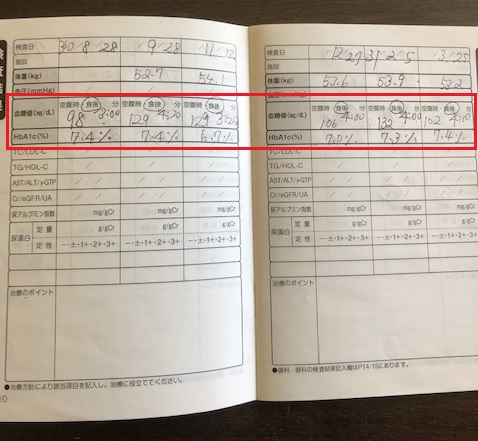 検査結果
検査日 30/8/28 /9/28 /11/12
施設
体重(kg) 52.7 54.1
血圧(mmHg)
血糖値(mg/dL) 空腹時・食後 分 空腹時・食後 分 空腹時・食後 分
98 3:00 129 4:20 129
HbA1c(%) 7.4% 7.4% 6.7%
TC/LDL-C
TG/HDL-C
AST/ALT/γGTP
Cr/eGFR/UA
尿アルブミン指数 mg/gCr mg/gCr mg/gCr
尿蛋白 定量 g/gCr g/gCr g/gCr
定性 −・±・1+・2+・3+ −・±・1+・2+・3+ −・±・1+・2+・3+
治療のポイント
●治療方針により該当項目を記入し、治療に役立ててください。
10
検査日 12/27 31/2/5 /3/25
施設
体重(kg) 53.6 53.9 53.2
血糖値(mg/dL) 空腹時・食後 分 空腹時・食後 分 空腹時・食後 分
106 4:00 132 4:00 102 4:10
HbA1c(%) 7.0% 7.3% 7.4%
TC/LDL-C
TG/HDL-C
AST/ALT/γGTP
Cr/eGFR/UA
尿アルブミン指数 mg/gCr mg/gCr mg/gCr
尿蛋白 定量 g/gCr g/gCr g/gCr
定性 −・±・1+・2+・3+ −・±・1+・2+・3+ −・±・1+・2+・3+
治療のポイント
●歯科・眼科の検査結果記入欄はP14-15にあります。